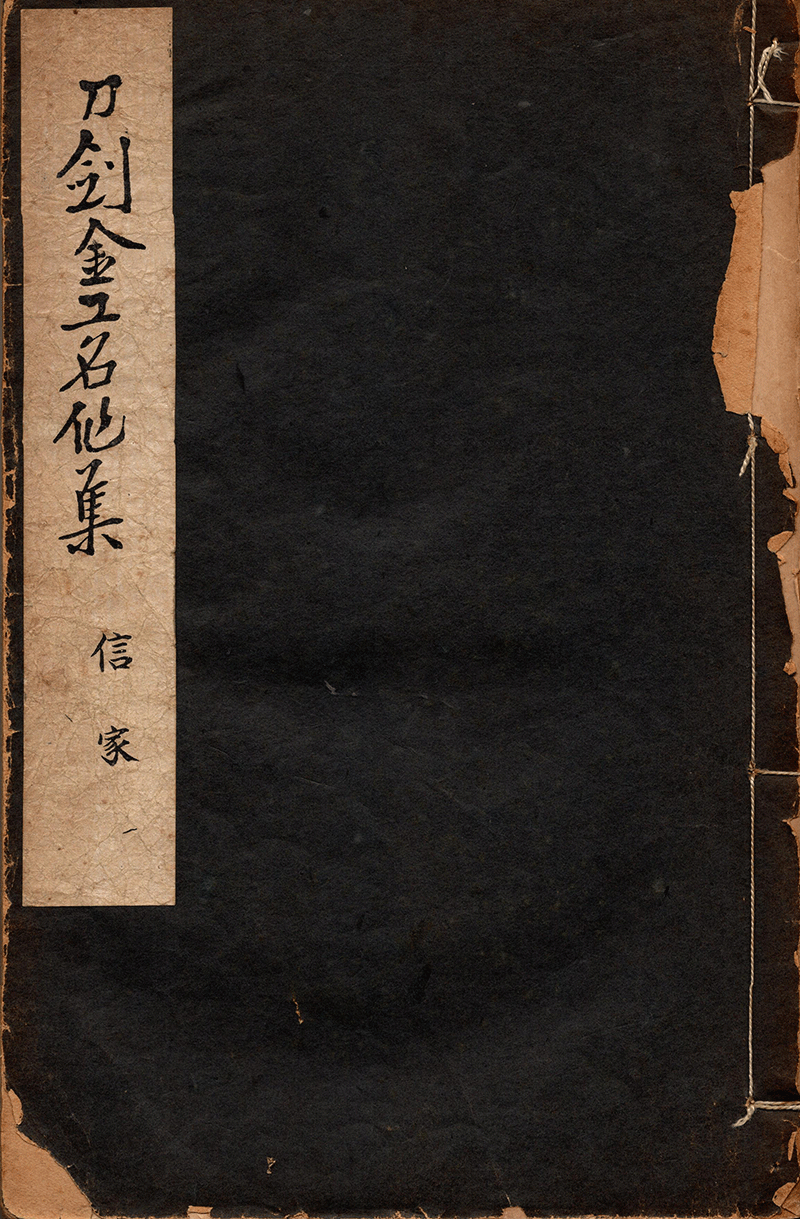 刀剣金工名作集
信家